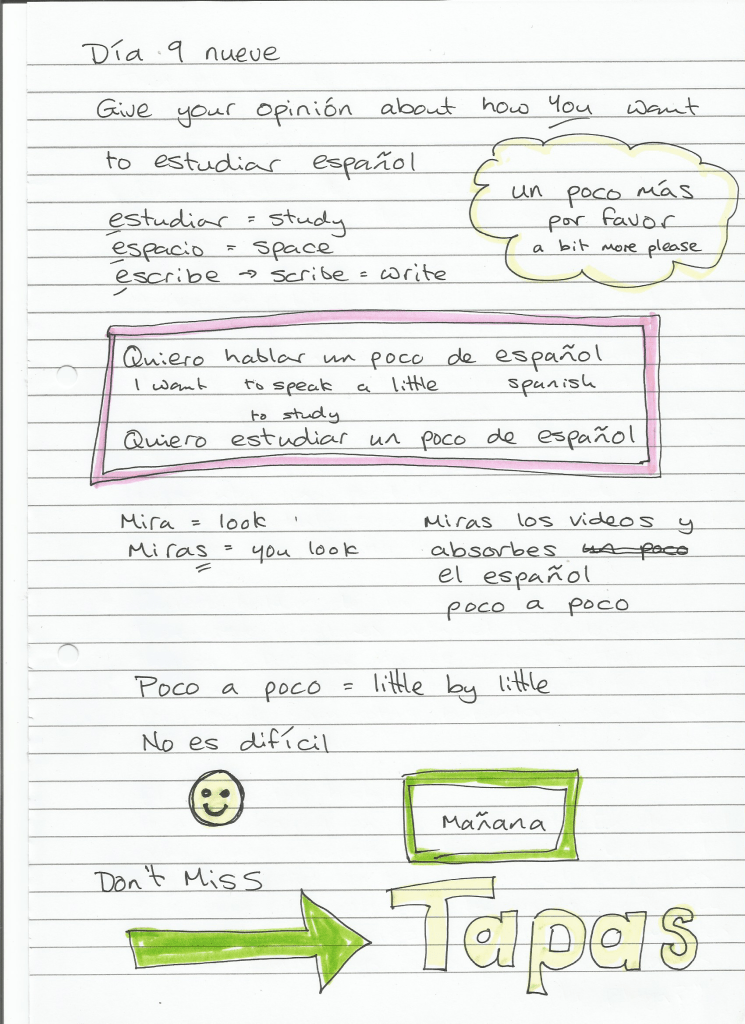 Día 9 nueve
Give your opinión about how you want
to estudiar español
un poco más
por favor
a bit more please
estudiar = study
espacio = space
escribe → scribe = write
Quiero hablar un poco de español
I want to speak a little spanish
to study
Quiero estudiar un poco de español
Mira = look
Miras = you look
Miras los videos y
absorbes un poco
el español
poco a poco
Poco a poco = little by little
No es difícil
Mañana
Don't Miss
Tapas